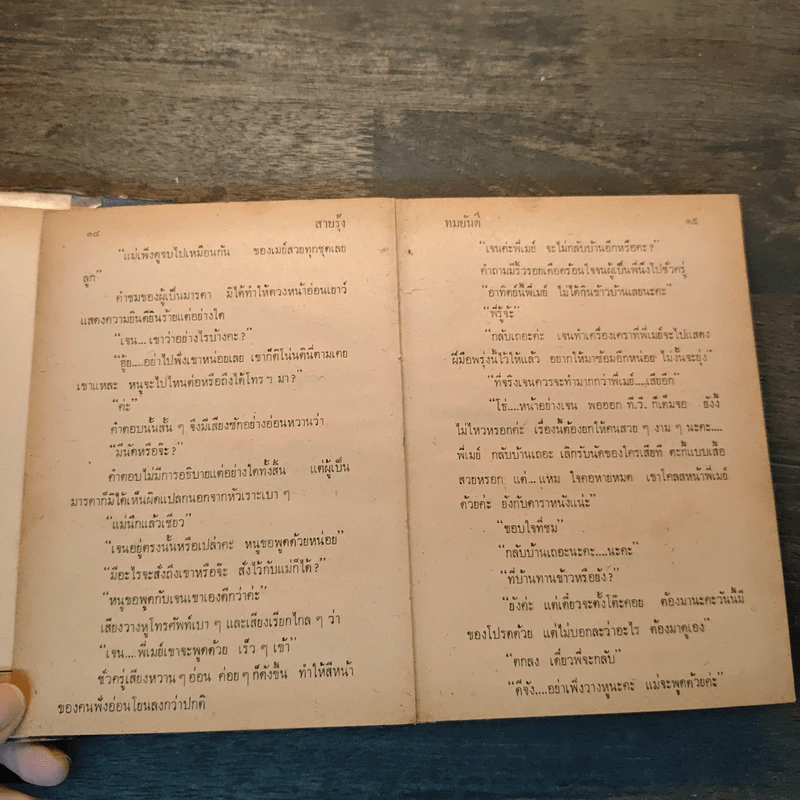 ๑๔ สายรุ้ง
“แม่เพิ่งดูจบไปเหมือนกัน ของเมย์สวยทุกชุดเลย
ลูก”
คำชมของผู้เป็นมารดา มิได้ทำให้ดวงหน้าอ่อนเยาว์
แสดงความยินดียินร้ายแต่อย่างใด
“เจน... เขาว่าอย่างไรบ้างคะ?”
“อุ๊ย....อย่าไปฟังเขาหน่อยเลย เขาก็ติโน่นตินี่ตามเคย
เขาแหละ หนูจะไปไหนต่อหรือถึงได้โทร ฯ มา?”
“ค่ะ”
คำตอบนั้นสั้น ๆ จึงมีเสียงซักอย่างอ่อนหวานว่า
“มีนัดหรือจ๊ะ?”
คำตอบไม่มีการอธิบายแต่อย่างใดทั้งสิ้น แต่ผู้เป็น
มารดาก็มิได้เห็นผิดแปลกนอกจากหัวเราะเบา ๆ
“แม่นึกแล้วเชียว”
“เจนอยู่ตรงนั้นหรือเปล่าคะ หนูขอพูดด้วยหน่อย”
“มีอะไรจะสั่งถึงเขาหรือจ๊ะ สั่งไว้กับแม่ก็ได้?”
“หนูขอพูดกับเจนเขาเองดีกว่าค่ะ”
เสียงวางหูโทรศัพท์เบา ๆ และเสียงเรียกไกล ๆ ว่า
“เจน....พี่เมย์เขาจะพูดด้วย เร็ว ๆ เข้า”
ชั่วครู่เสียงหวาน ๆ อ่อน ค่อย ๆ ก็ดังขึ้น ทำให้สีหน้า
ของคนฟังอ่อนโยนลงกว่าปกติ
ทมยันตี ๑๕
“เจนค่ะพี่เมย์ จะไม่กลับบ้านอีกหรือคะ?”
คำถามมีริ้วรอยเดือดร้อนใจจนผู้เป็นพี่นิ่งไปชั่วครู่
“อาทิตย์นี้พี่เมย์ ไม่ได้กินข้าวบ้านเลยนะคะ”
“พี่รู้จ้ะ”
“กลับเถอะค่ะ เจนทำเครื่องเคราที่พี่เมย์จะไปแสดง
ฝีมือพรุ่งนี้ไว้ให้แล้ว อยากให้มาซ้อมอีกหน่อย ไม่งั้นจะยุ่ง”
“ที่จริงเจนควรจะทำมากกว่าพี่เมย์....เสียอีก”
“โธ่....หน้าอย่างเจน พอออก ที.วี. ก็เต็มจอ ยังงี้
ไม่ไหวหรอกค่ะ เรื่องนี้ต้องยกให้คนสวย ๆ งาม ๆ นะคะ....
พี่เมย์ กลับบ้านเถอะ เลิกรับนัดของใครเสียที ตะกี้แบบเสื้อ
สวยหรอก แต่... แหม ใจคอหายหมด เขาโคลสหน้าพี่เมย์
ด้วยค่ะ ยังกับดาราหนังแน่ะ”
“ขอบใจที่ชม”
“กลับบ้านเถอะนะคะ....นะคะ”
“ที่บ้านทานข้าวหรือยัง?”
“ยังค่ะ แต่เดี๋ยวจะตั้งโต๊ะคอย ต้องมานะคะวันนี้มี
ของโปรดด้วย แต่ไม่บอกละว่าอะไร ต้องมาดูเอง”
“ตกลง เดี๋ยวพี่จะกลับ”
“ดีจัง....อย่าเพิ่งวางหูนะคะ แม่จะพูดด้วยค่ะ”